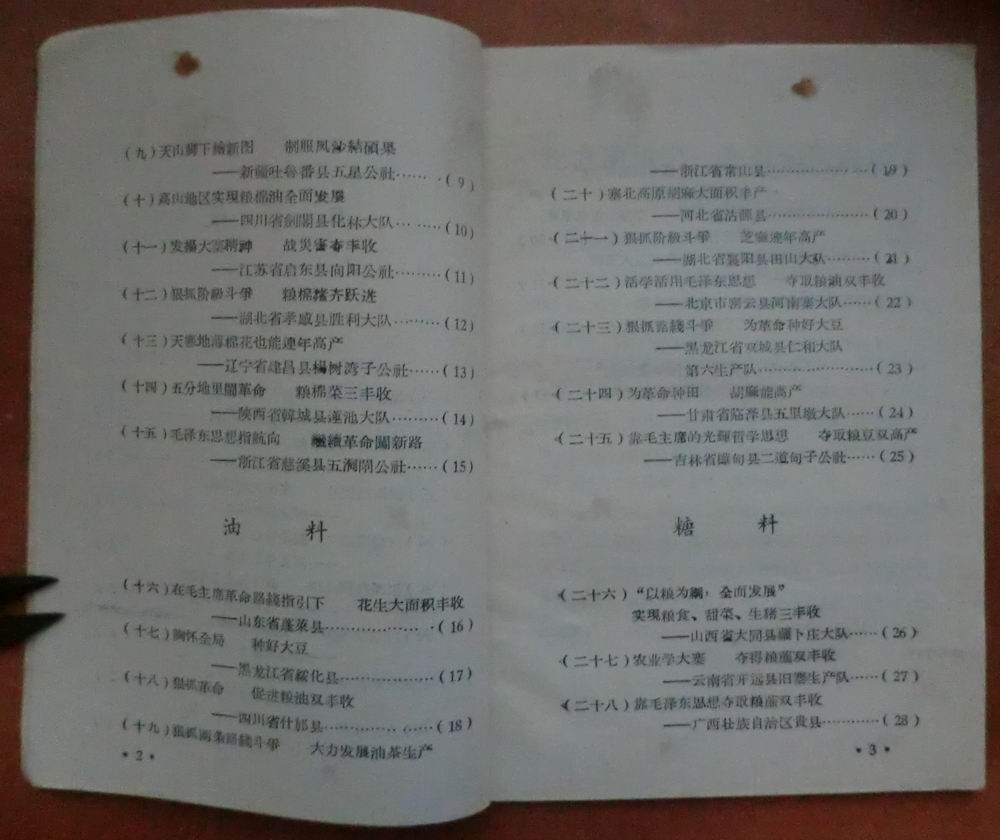 (九)天山脚下繪新图　制服风沙結碩果
——新疆吐鲁番县五星公社……(9)
(十)高山地区实现粮棉油全面发展
——四川省劍閣县化林大队…(10)
(十一)发揚大寨精神　战灾害夺丰收
——江苏省启东县向阳公社……(11)
(十二)狠抓阶級斗爭　粮棉猪齐跃进
——湖北省孝感县胜利大队………(12)
(十三)天寒地薄棉花也能連年高产
——辽宁省建昌县楊树湾子公社……(13)
(十四)五分地里鬧革命　粮棉菜三丰收
——陝西省韓城县蓮池大队………(14)
(十五)毛泽东思想指航向　繼續革命闖新路
——浙江省慈溪县五洞閘公社……(15)
油　料
(十六)在毛主席革命路綫指引下　花生大面积丰收
——山东省蓬萊县……………(16)
(十七)胸怀全局　种好大豆
——黑龙江省綏化县……………(17)
(十八)狠抓革命　促进粮油双丰收
——四川省什邡县……………(18)
(十九)狠抓两条路綫斗爭　大力发展油茶生产
·2·
——浙江省常山县………………(19)
(二十)塞北高原胡麻大面积丰产
——河北省沽源县………………(20)
(二十一)狠抓阶級斗爭　芝麻連年高产
——湖北省襄阳县田山大队……(21)
(二十二)活学活用毛泽东思想　夺取粮油双丰收
——北京市密云县河南寨大队……(22)
(二十三)狠抓路綫斗爭　为革命种好大豆
——黑龙江省双城县仁和大队
第六生产队………………(23)
(二十四)为革命种田　胡麻能高产
——甘肃省临泽县五里墩大队……(24)
(二十五)靠毛主席的光輝哲学思想　夺取粮豆双高产
——吉林省樺甸县二道甸子公社……(25)
糖　料
(二十六)“以粮为綱，全面发展”
实现粮食、甜菜、生猪三丰收
——山西省大同县蘿卜庄大队……(26)
(二十七)农业学大寨　夺得粮蔗双丰收
——云南省开远县旧寨生产队……(27)
(二十八)靠毛泽东思想夺取粮蔗双丰收
——广西壮族自治区貴县…………(28)
·3·